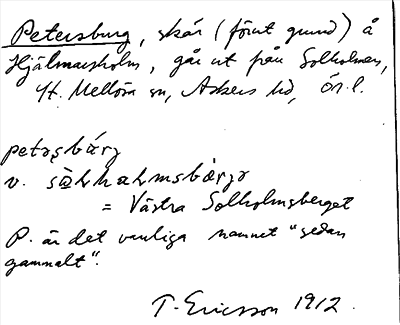 Petersburg, skär (förut grund) å
Hjälmarsholm, går ut från Solholmen,
St. Mellösa sn, Askers hd, Ör. l.
petəṣbárj
v. sὰlhαlmsbὰrjə
= Västra Solholmsberget
P. är det vanliga namnet "sedan
gammalt".
T. Ericsson 1912.